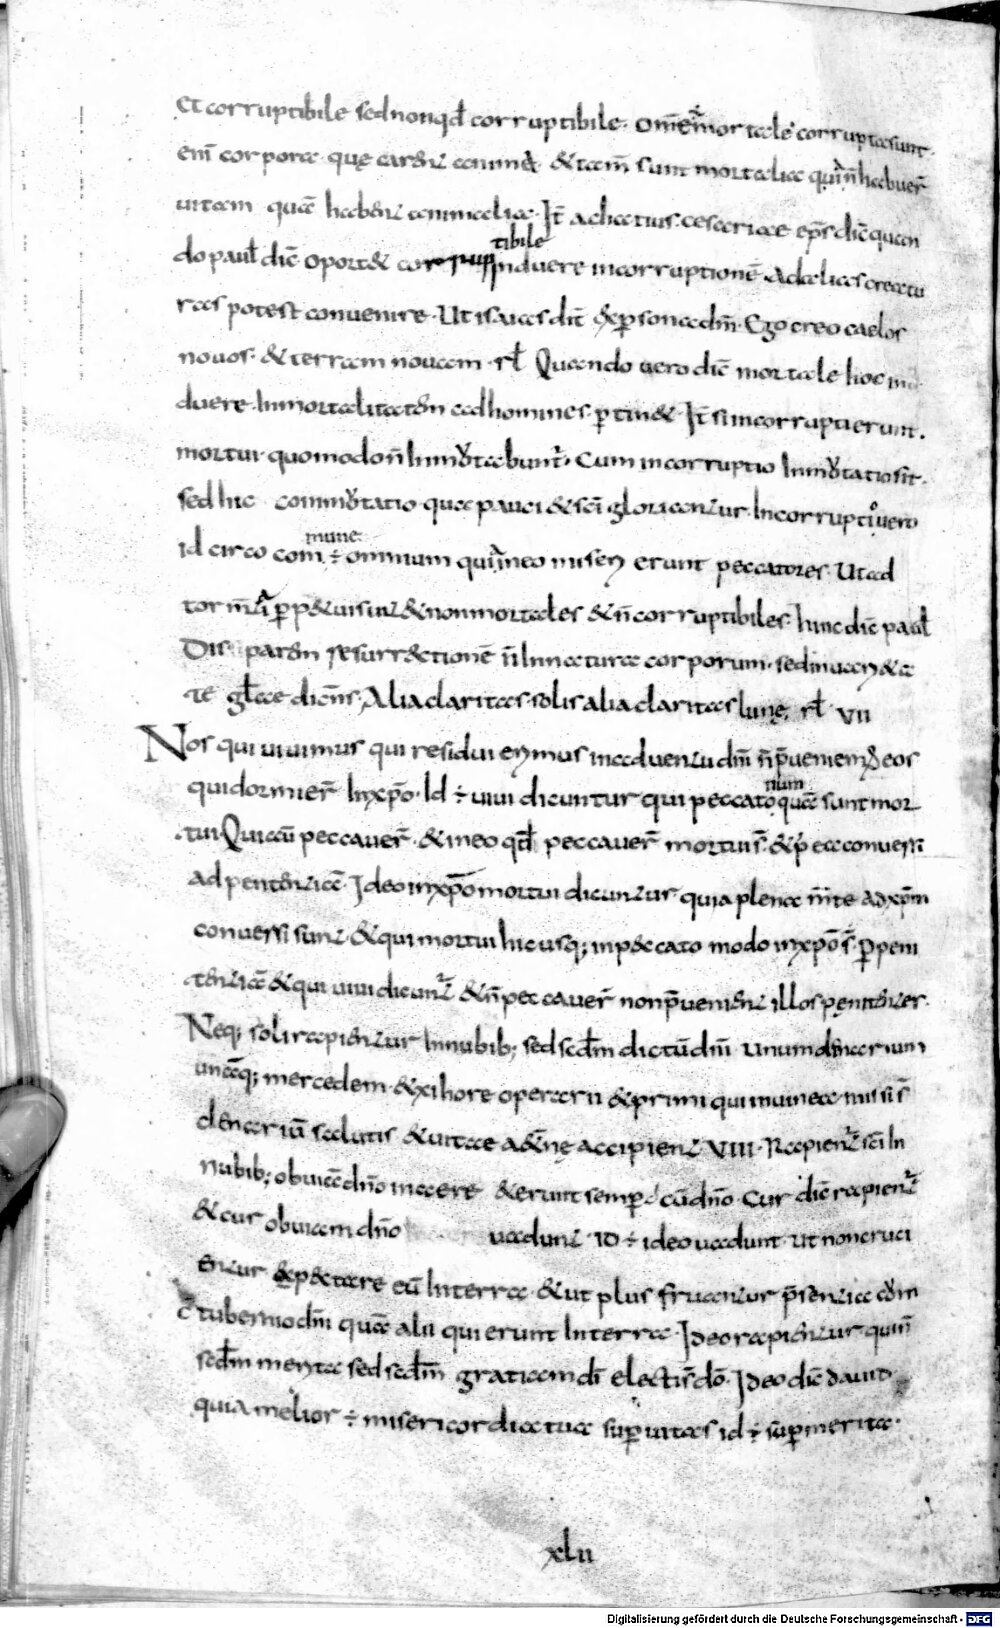 et corruptibile sed non qđ corruptibile. Om̄e mortale corrupta sunt
eni͞ corpora quę carent anima & tam̄ sunt mortalia quia n̄ habuer̄
uitam quā habent animalia. It̄ achatius cesariae ep̄s dic̄ quan
do paul̄ dic̄ oport& corruptibile induere incorruptionē. Ad alias creatu
ras potest conuenire. Ut isaias dit ex persona dn̄i. Ego creo caelos
nouos. & terram nouam. rł Quando uero dic̄ mortale hoc in
duere. Inmortalitatem ad homines ꝑtin&. It̄ si incorrupti erunt.
mortui. quomodo n̄ Inmutabunt᷑. Cum incorruptio Inmutatio sit.
sed hic commutatio qua pauci & sc̄i gloriantur. Incorruptio uero
id circo commune ÷ omnium quia in eo miseri erunt peccatores. Ut ad
tormn̄ta ꝑp&ui sint & non mortales & n̄ corruptibiles. hinc dic̄ paul̄
Disparem resurrectionē n̄ In natura corporum. sed in uari&a
te gl̄ae dicn̄s. Alia claritas. solis alia claritas lunę. rł VII
Nos qui uiuimus qui residui erimus in aduentu dn̄i n̄ p̄ueniem᷒ eos
qui dormier̄ In xp̄o. Id ÷ uiui dicuntur qui peccatorum quā sunt mor
tui. Qui cū peccauer̄ & in eo qđ peccauer̄ mortui s̄. & p ea conuersi
ad penitentiā. Ideo in xp̄o mortui dicuntur. quia plena m̄te ad xp̄m
conuersi sunt & qui mortui huc usq; in peccato modo in xp̄o s̄. ꝑ peni
tentiā & qui uiui dicunt᷑ & n̄ peccauer̄ non p̄uenient illos pęnitentes.
Neq; soli rapientur In nubib; sed scđm dictū dn̄i unum denarium
unāq; mercedem & xi hore operarii & primi qui in uinea missi s̄
denariū salutis & uitae aet̄nę accipient VIII. Rapient᷑ sc̄i In
nubib; obuiā dn̄o in aere & erunt semper cū dn̄o. Cur dic̄ rapient᷑
& cur obuiam dn̄o uadunt. ID ÷ ideo uadunt. ut non cruci
entur expectare eū In terra. & ut plus fruantur p̄sentia
tubernio dn̄i quā alii qui erunt In terra. Ideo rapientur qui n̄
scđm merita sed scđm gratiam dī electis dō. Ideo dic̄ dauid
quia melior ÷ misericordia tua super uitas id ÷ super merita.
xlii
Digitalisierung gefördert durch die Deutsche Forschungsgemeinschaft - DFG